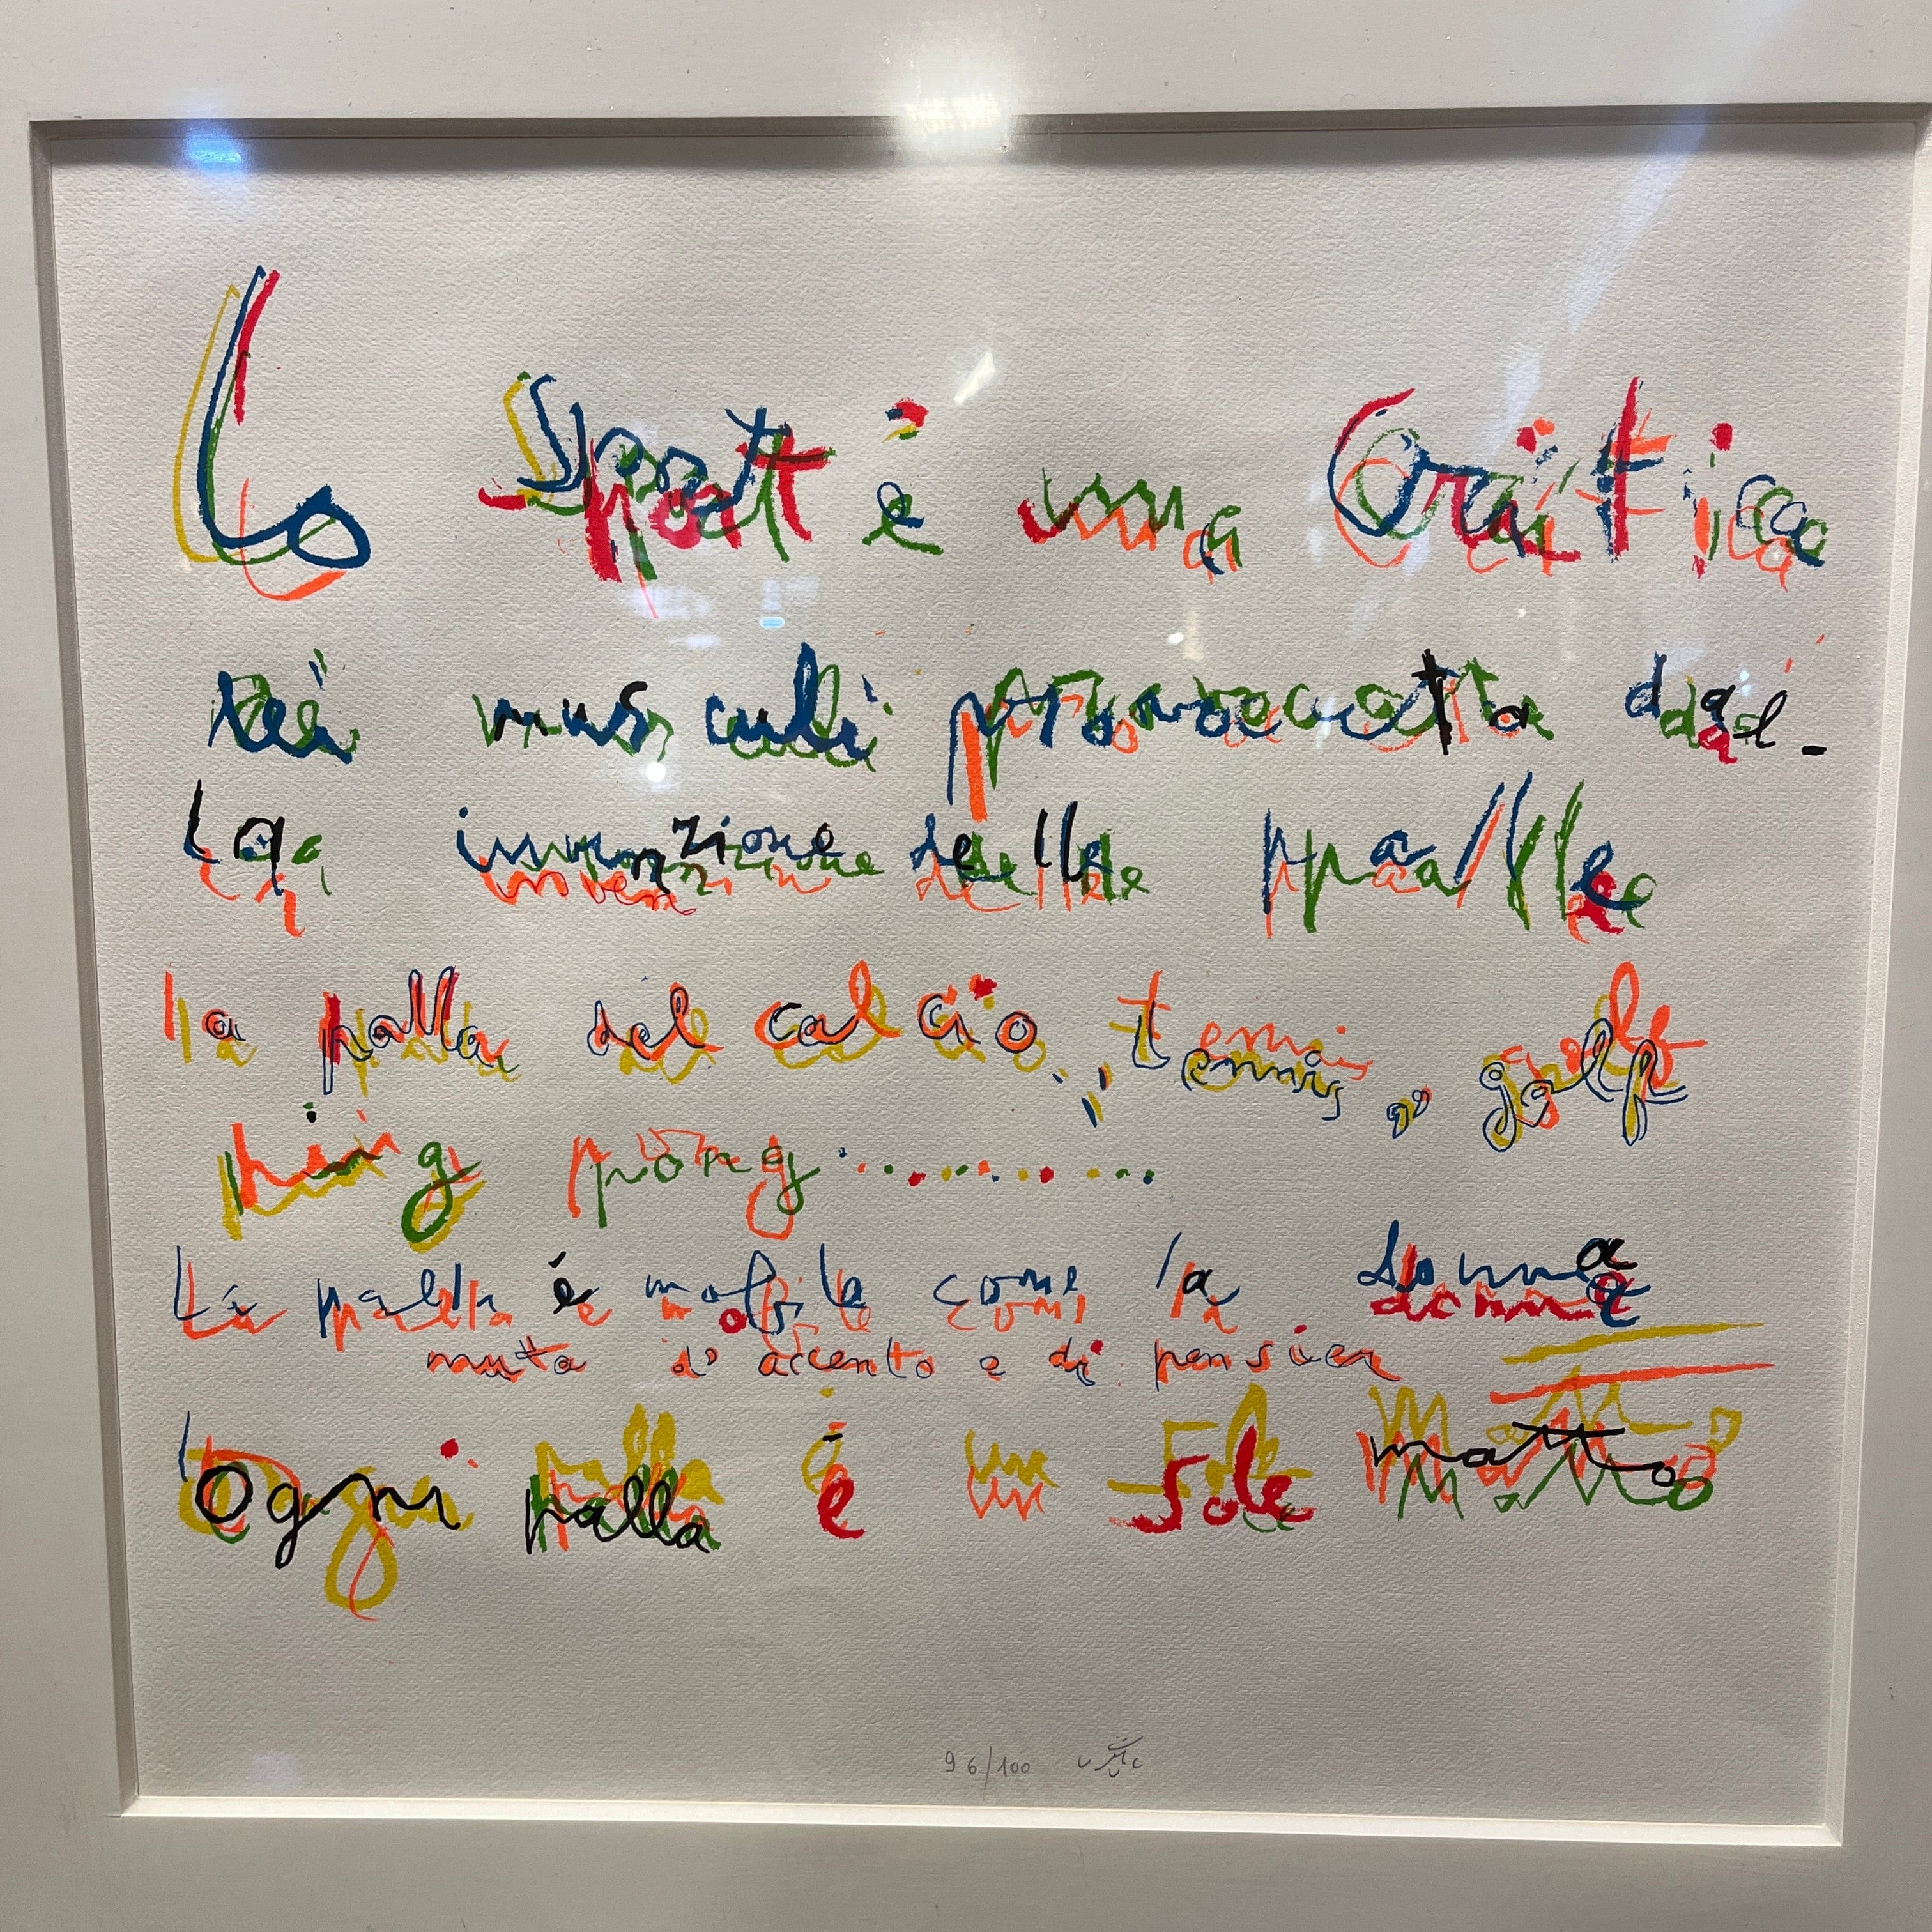 Lo Sport è una Critica
dei muscoli provocata dal-
la invenzione delle palle
la palla del calcio, tennis, golf
ping pong............
La palla è mobile come la donna
muta d'accento e di pensier
Ogni palla è un Sole matto
96/100